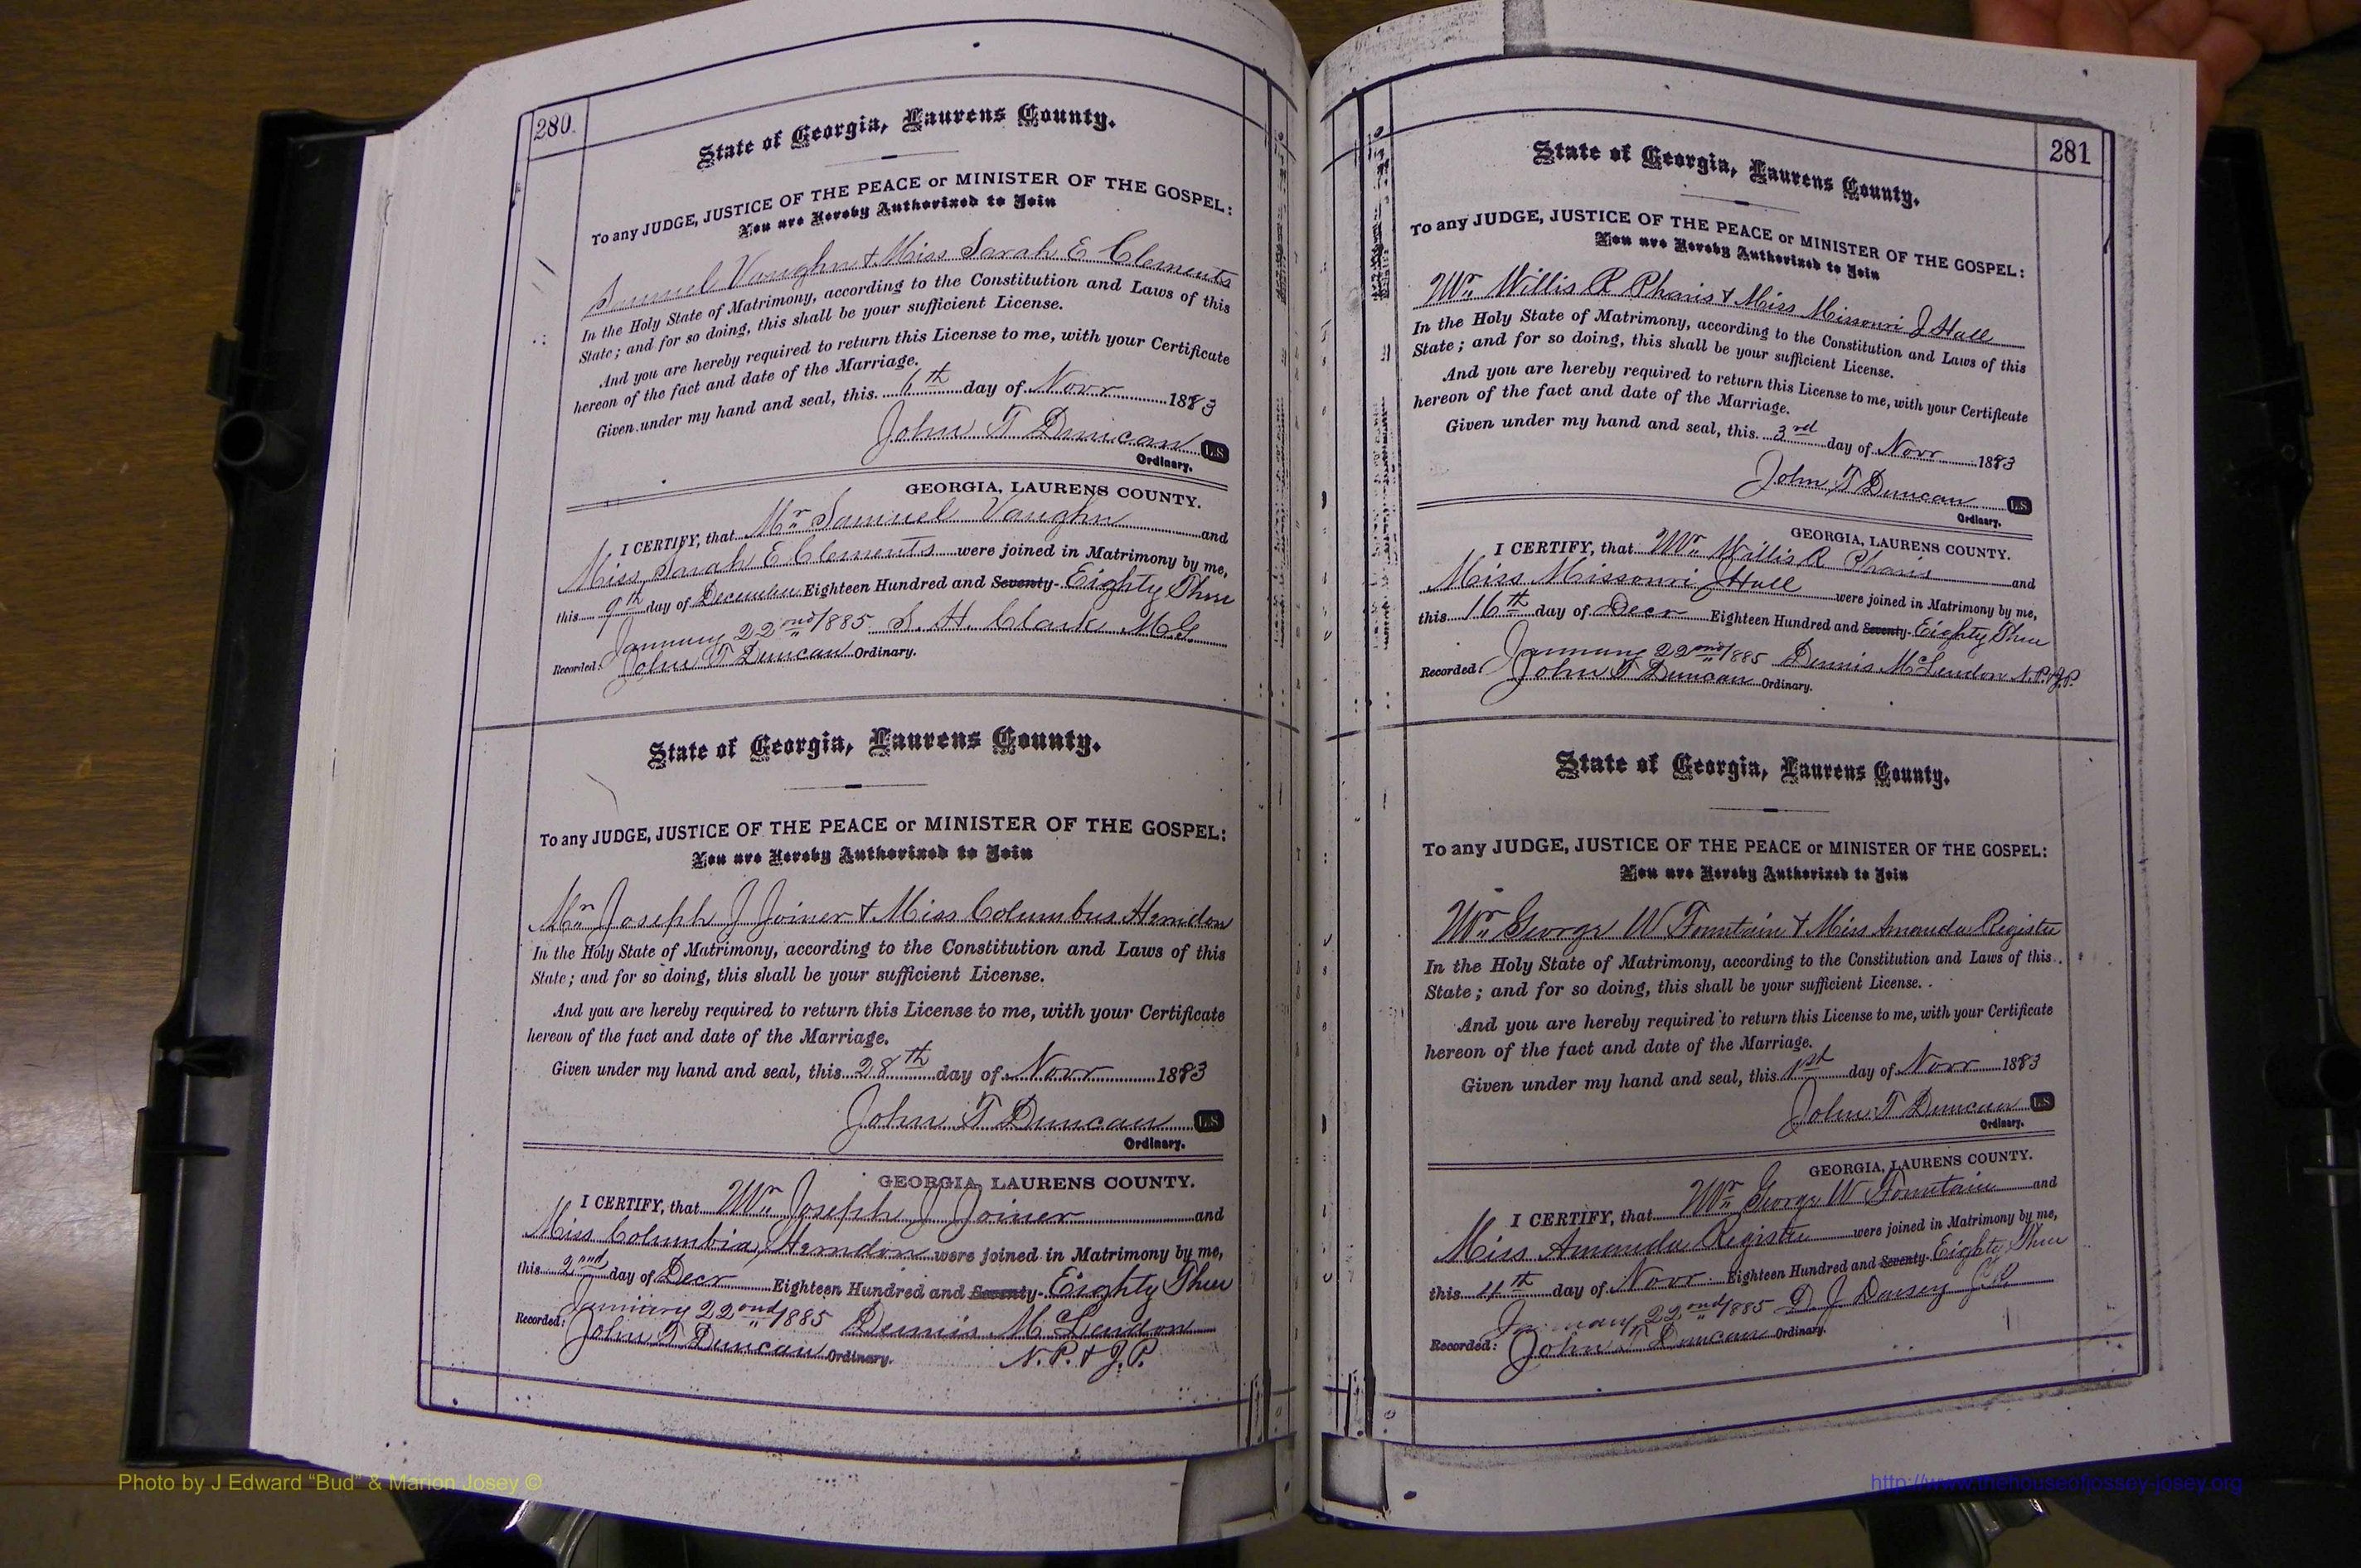 280.
State of Georgia, Laurens County.
To any JUDGE, JUSTICE OF THE PEACE or MINISTER OF THE GOSPEL:
You are Hereby Authorized to Join
Samuel Vaughn & Miss Sarah E Clements
In the Holy State of Matrimony, according to the Constitution and Laws of this
State; and for so doing, this shall be your sufficient License.
And you are hereby required to return this License to me, with your Certificate
hereon of the fact and date of the Marriage.
Given under my hand and seal, this 6th day of Novr 1883
John T Duncan L.S.
Ordinary.
GEORGIA, LAURENS COUNTY.
I CERTIFY, that Mr Samuel Vaughn and
Miss Sarah E Clements were joined in Matrimony by me,
this 9th day of December Eighteen Hundred and Seventy- Eighty Three
January 22nd 1885 S. H. Clark M.G.
Recorded: John T Duncan Ordinary.
State of Georgia, Laurens County.
To any JUDGE, JUSTICE OF THE PEACE or MINISTER OF THE GOSPEL:
You are Hereby Authorized to Join
Mr Joseph J Joiner & Miss Columbus Herndon
In the Holy State of Matrimony, according to the Constitution and Laws of this
State; and for so doing, this shall be your sufficient License.
And you are hereby required to return this License to me, with your Certificate
hereon of the fact and date of the Marriage.
Given under my hand and seal, this 28th day of Novr 1883
John T Duncan L.S.
Ordinary.
GEORGIA, LAURENS COUNTY.
I CERTIFY, that Mr Joseph J Joiner and
Miss Columbia Herndon were joined in Matrimony by me,
this 2nd day of Decr Eighteen Hundred and Seventy- Eighty Three
January 22nd 1885 Dennis McLendon
Recorded: John T Duncan Ordinary. N.P. & J.P.
281
State of Georgia, Laurens County.
To any JUDGE, JUSTICE OF THE PEACE or MINISTER OF THE GOSPEL:
You are Hereby Authorized to Join
Mr Willis R Pharis & Miss Missouri J Hall
In the Holy State of Matrimony, according to the Constitution and Laws of this
State; and for so doing, this shall be your sufficient License.
And you are hereby required to return this License to me, with your Certificate
hereon of the fact and date of the Marriage.
Given under my hand and seal, this 3rd day of Novr 1883
John T Duncan L.S.
Ordinary.
GEORGIA, LAURENS COUNTY.
I CERTIFY, that Mr Willis R Pharis and
Miss Missouri J Hall were joined in Matrimony by me,
this 16th day of Decr Eighteen Hundred and Seventy- Eighty Three
January 22nd 1885 Dennis McLendon N.P. & J.P.
Recorded: John T Duncan Ordinary.
State of Georgia, Laurens County.
To any JUDGE, JUSTICE OF THE PEACE or MINISTER OF THE GOSPEL:
You are Hereby Authorized to Join
Mr George W Fountain & Miss Amanda Register
In the Holy State of Matrimony, according to the Constitution and Laws of this
State; and for so doing, this shall be your sufficient License.
And you are hereby required to return this License to me, with your Certificate
hereon of the fact and date of the Marriage.
Given under my hand and seal, this 1st day of Novr 1883
John T Duncan L.S.
Ordinary.
GEORGIA, LAURENS COUNTY.
I CERTIFY, that Mr George W Fountain and
Miss Amanda Register were joined in Matrimony by me,
this 4th day of Novr Eighteen Hundred and Seventy- Eighty Three
January 22nd 1885 D. J Darsey J.P.
Recorded: John T Duncan Ordinary.
Photo by J Edward “Bud” & Marion Josey ©
http://www.thehouseofjossey-josey.org